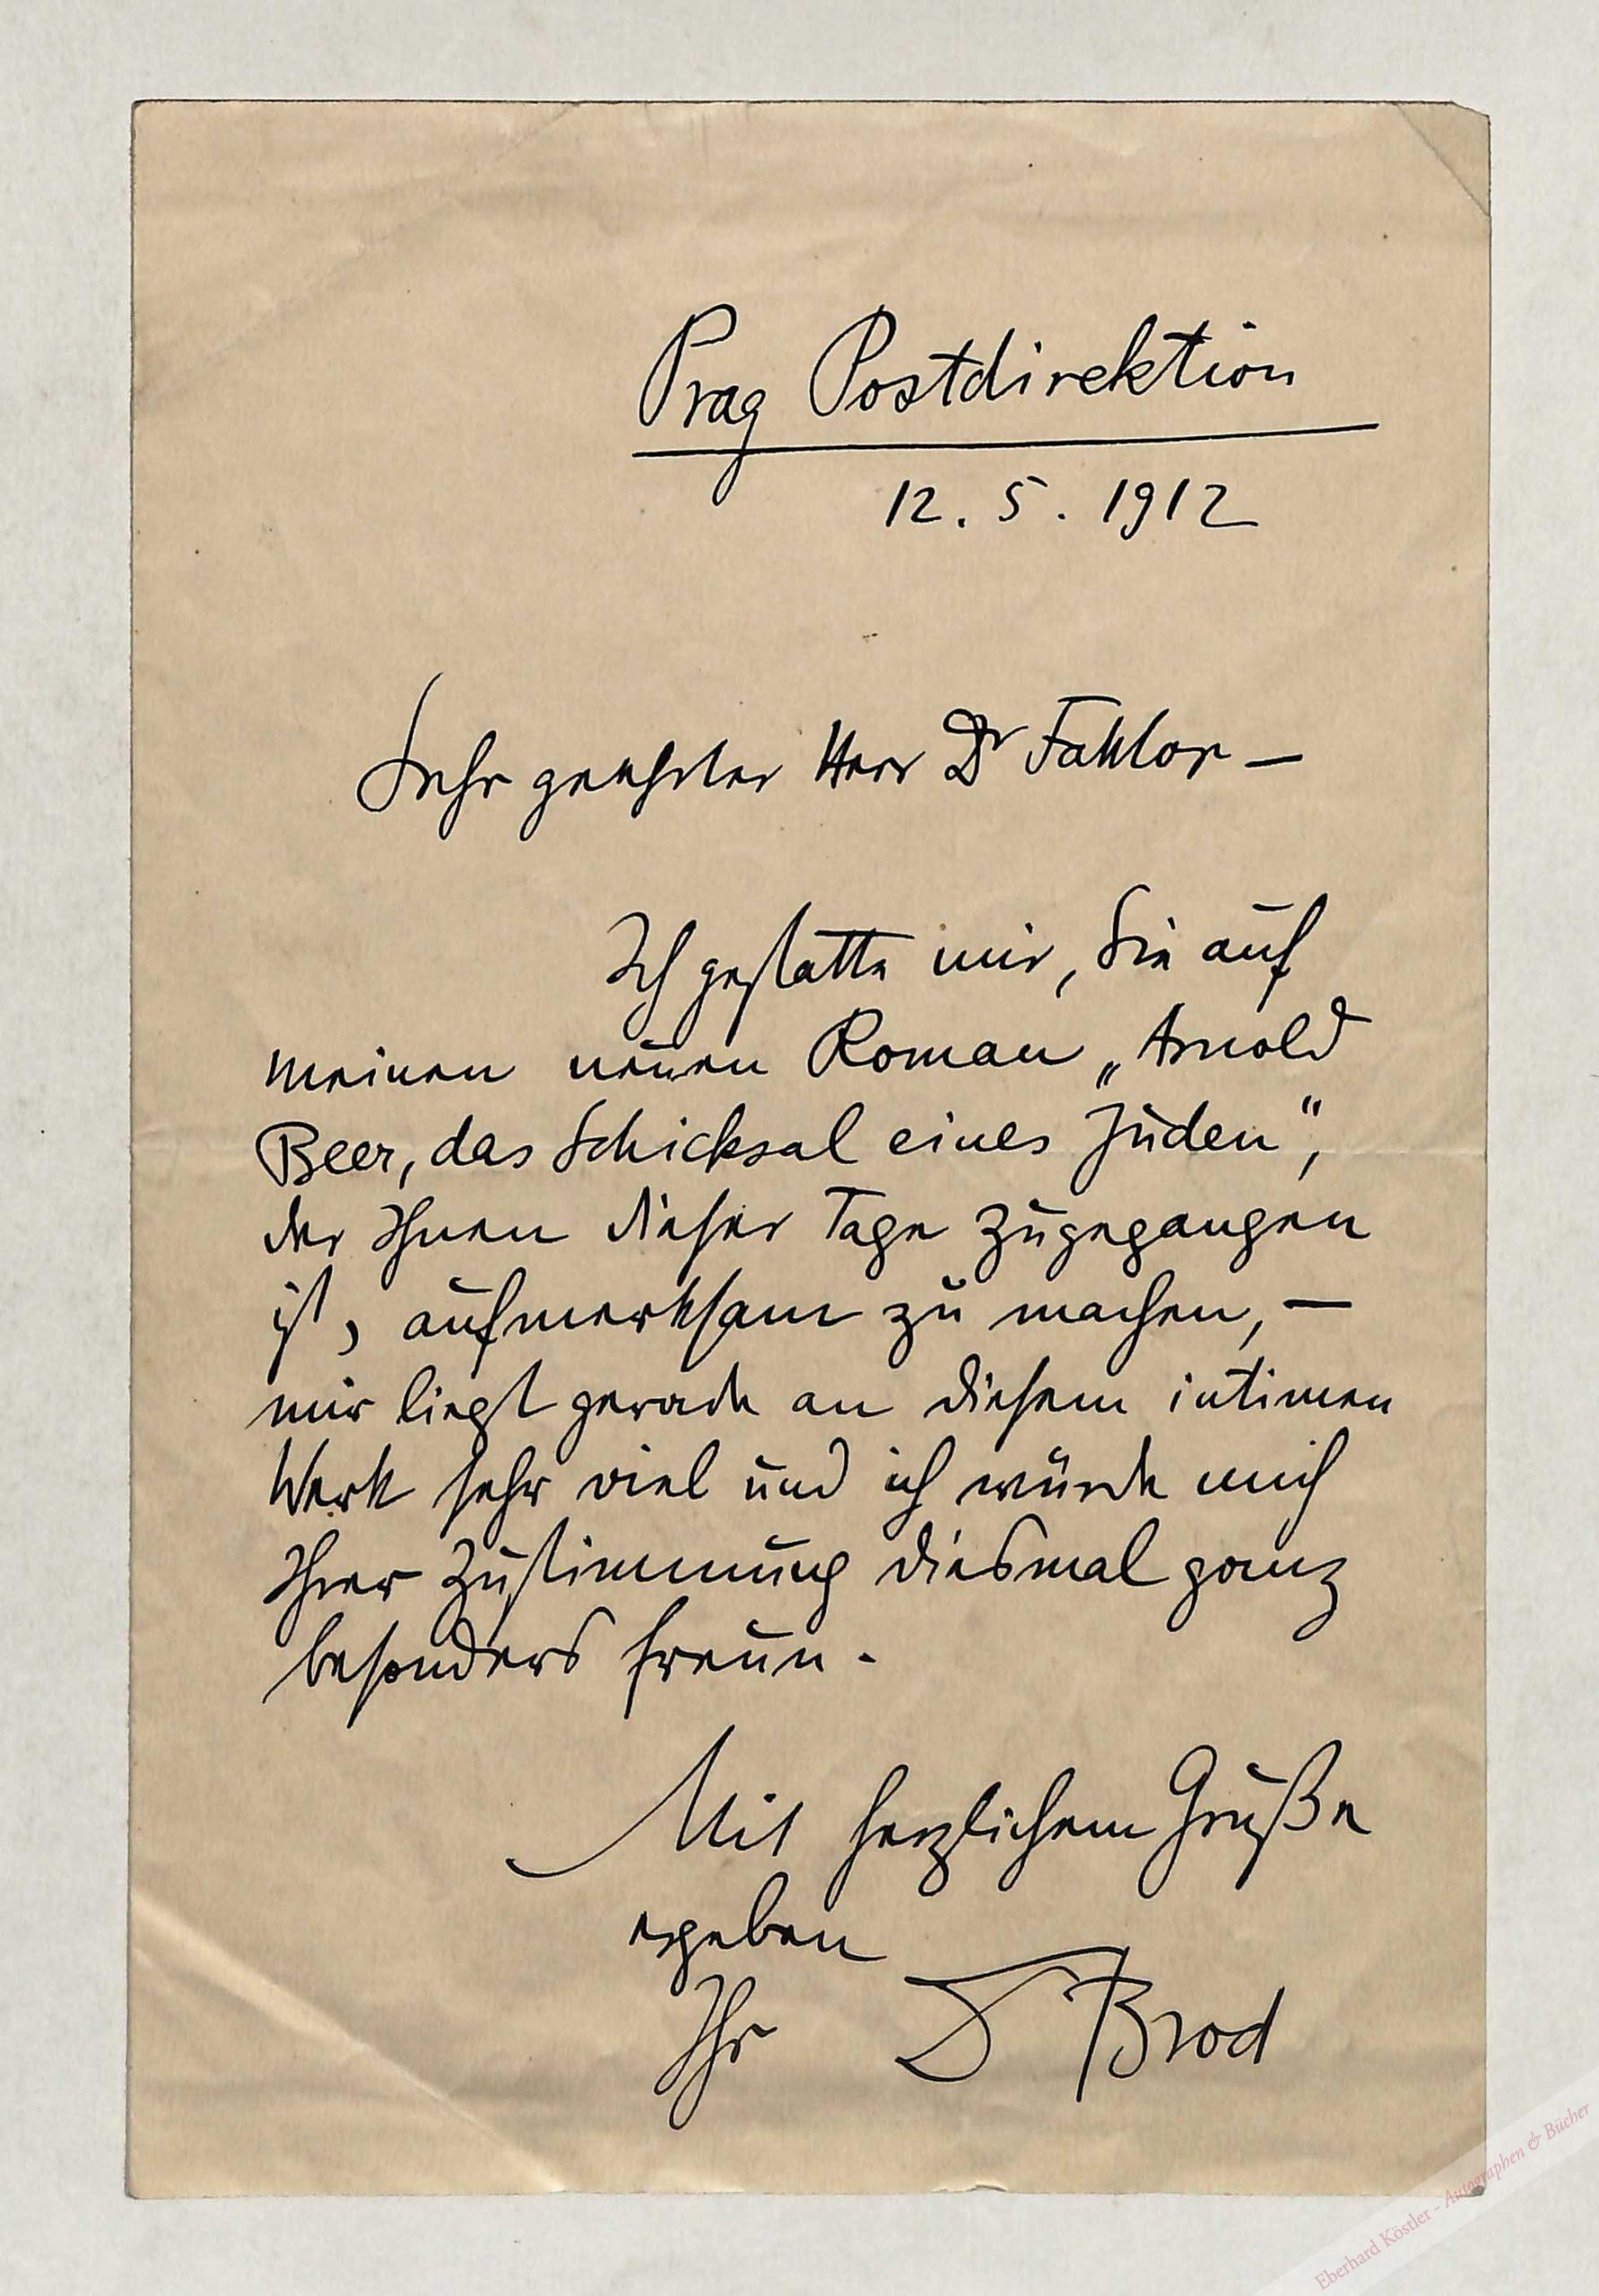 Prag Postdirektion
12. 5. 1912
Sehr geehrter Herr Dr
Ich gestatte mir, Sie auf
meinen neuen Roman „Arnold
Beer, das Schicksal eines Juden“,
der Ihnen dieser Tage zugegangen
ist, aufmerksam zu machen, —
mir liegt gerade an diesem intimen
Werk sehr viel und ich würde mich
Ihrer Zustimmung diesmal ganz
besonders freun.
Mit herzlichem Gruße
ergeben
Ihr Brod
Eberhard Köstler - Autographen & Bücher